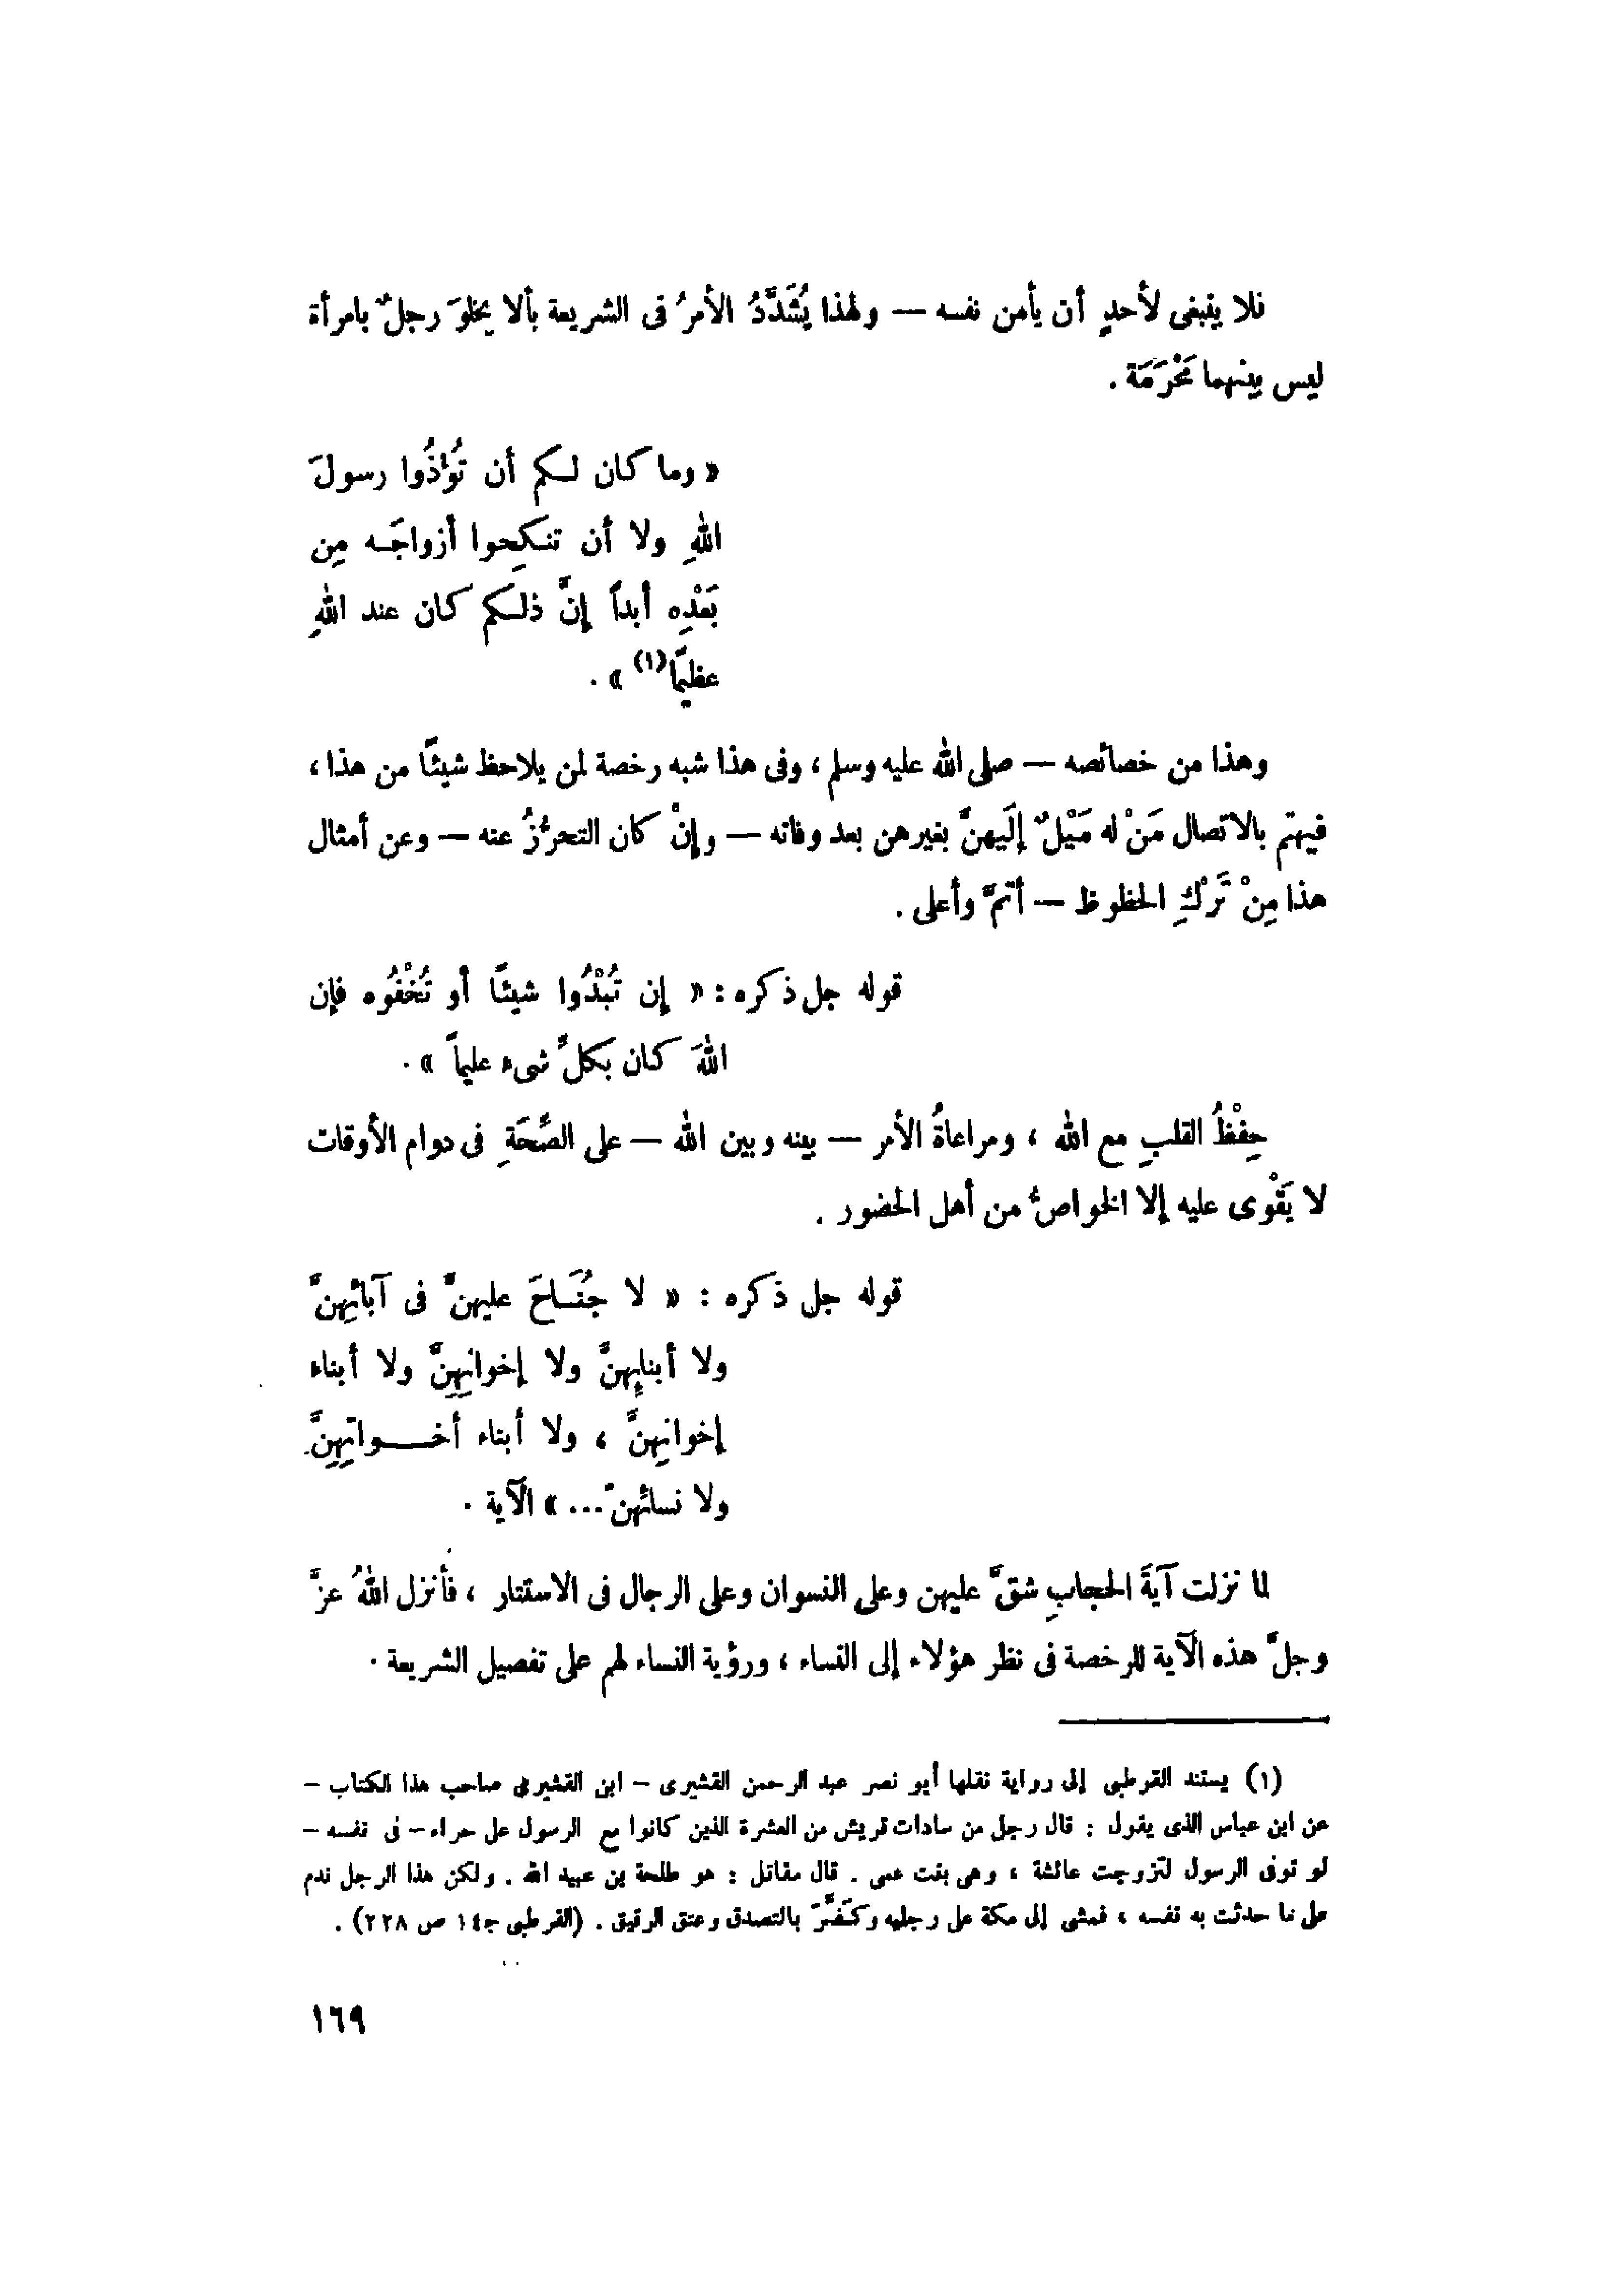 فلا ينبغى لأحدٍ أن يأمن نفسه — ولهذا يُشَدَّدُ الأمرُ فى الشريعة بألا يخلوَ رجلٌ بامرأة
ليس بينهما مَحْرَمَة .
« وما كان لكم أن تُؤْذُوا رسولَ
اللهِ ولا أن تنكِحوا أزواجَه مِن
بَعْدِه أبداً إنَّ ذلكم كان عند اللهِ
عظيمًا(١) » .
وهذا من خصائصه — صلى الله عليه وسلم ، وفى هذا شبه رخصة لمن يلاحظ شيئًا من هذا ،
فيهتم بالاتصال مَنْ له مَيْلٌ إلَيهنَّ بغيرهن بعد وفاته — وإنْ كان التحرُّزُ عنه — وعن أمثال
هذا مِنْ تَرْكِ الحظوظ — أتمَّ وأعلى .
قوله جل ذكره : « إن تُبْدُوا شيئًا أو تُخْفُوه فإن
اللهَ كان بكلِّ شىء عليماً » .
حِفْظُ القلبِ مع الله ، ومراعاةُ الأمر — بينه وبين الله — على الصِّحَةِ فى دوام الأوقات
لا يَقْوى عليه إلا الخواصُّ من أهل الحضور .
قوله جل ذكره : « لا جُنَاحَ عليهنَّ فى آبائِهنَّ
ولا أبنائِهنَّ ولا إخوانِهِنَّ ولا أبناء
إخوانِهنَّ ، ولا أبناء أخــواتِهِنَّ
ولا نسائهنّ ... » الآية .
لما نزلت آيةَ الحجابِ شقَّ عليهن وعلى النسوان وعلى الرجال فى الاستتار ، فأنزل اللهُ عزَّ
وجلَّ هذه الآية للرخصة فى نظر هؤلاء إلى النساء ، ورؤية النساء لهم على تفصيل الشريعة .
(١) يستند القرطبى إلى رواية نقلها أبو نصر عبد الرحمن القشيرى – ابن القشيرى صاحب هذا الكتاب –
عن ابن عباس الذى يقول : قال رجل من سادات قريش من العشرة الذين كانوا مع الرسول على حراء – فى نفسه –
لو توفى الرسول لتزوجت عائشة ، وهى بنت عمى . قال مقاتل : هو طلحة بن عبيد الله . ولكن هذا الرجل ندم
على ما حدثت به نفسه ، فمشى إلى مكة على رجليه وكَفَّرَ بالتصدق وعتق الرقيق . (القرطبى ج١٤ ص ٢٢٨) .
١٦٩